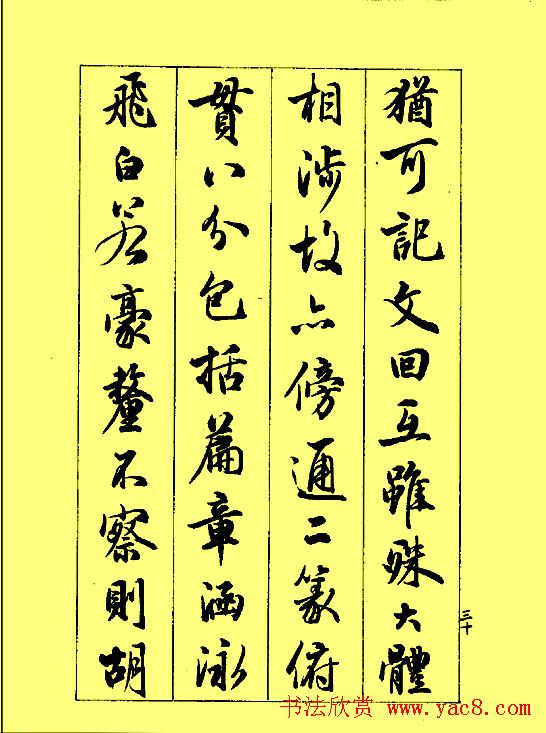 猶可記文回互雖殊大體
相涉故亦傍通二篆俯
貫八分包括篇章涵泳
飛白若豪釐不察則胡
三十
书法欣赏 www.yac8.com